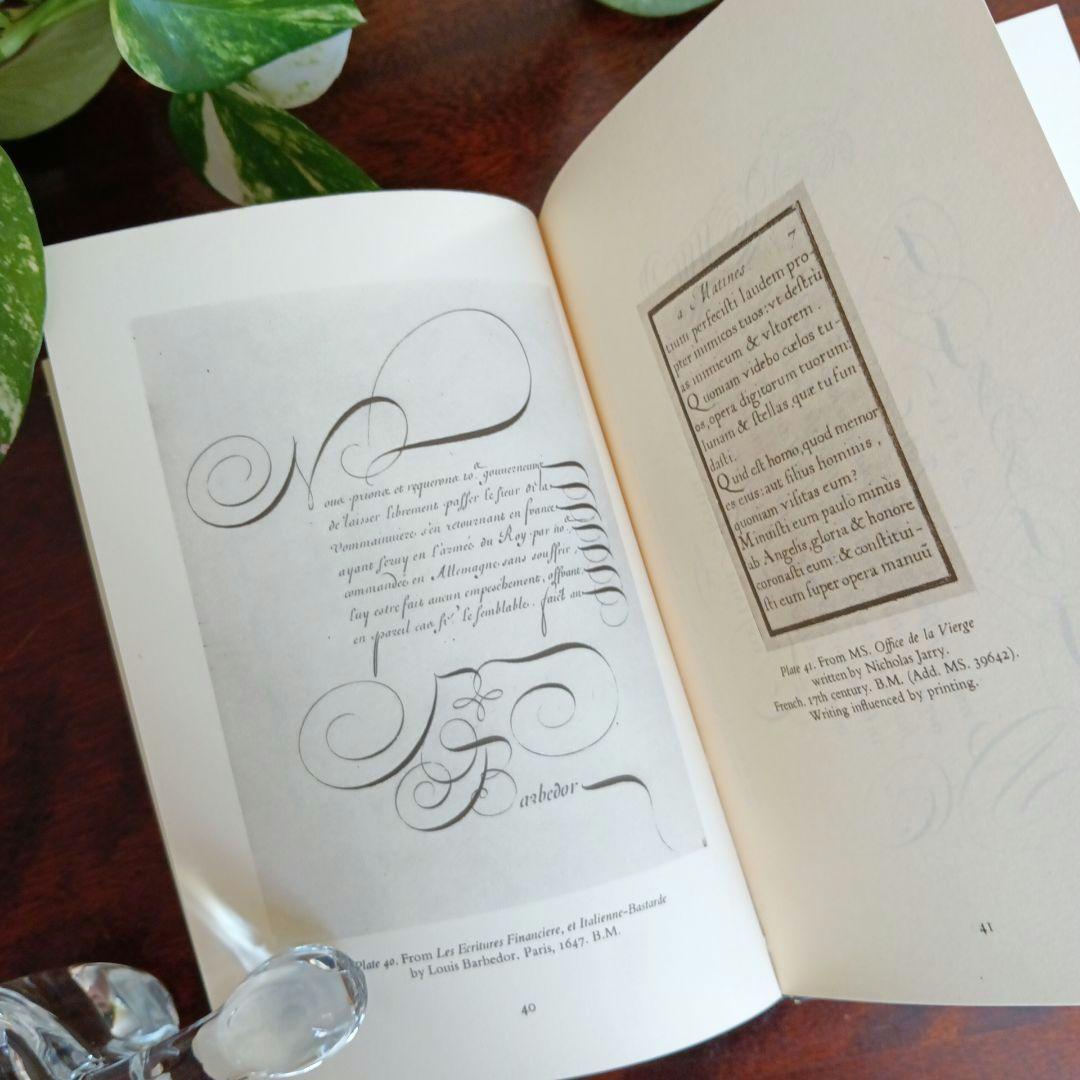 Nous prions et requerons to⁹ gouverneurs
de laisser librement passer le sieur de la
Vommainuiere s'en retournant en france
ayant seruy en l'armée du Roy par no⁹
commandée en Allemagne sans souffrir
luy estre fait aucun empeschement, offrant
en pareil cas le semblable. faict au
Barbedor
Plate 40. From Les Ecritures Financiere, et Italienne-Bastarde
by Louis Barbedor, Paris, 1647. B.M.
40
a Matines. 7
trium perfecisti laudem pro-
pter inimicos tuos: vt destrũ
as inimicum & vltorem.
Quoniam videbo cœlos tu-
os, opera digitorum tuorum:
lunam & stellas, quæ tu fun
dasti.
Quid est homo, quod memor
es eius: aut filius hominis,
quoniam visitas eum?
Minuisti eum paulò minùs
ab Angelis, gloria & honore
coronasti eum: & constitui-
sti eum super opera manuũ
Plate 41. From MS. Office de la Vierge
written by Nicholas Jarry.
French, 17th century. B.M. (Add. MS. 39642).
Writing influenced by printing.
41